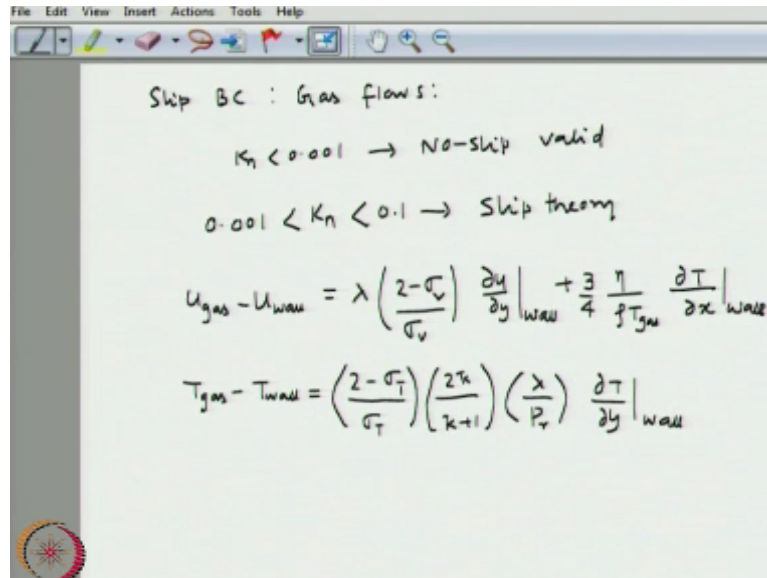 File Edit View Insert Actions Tools Help
Slip BC : Gas flows:
Kn < 0.001 → No-slip valid
0.001 < Kn < 0.1 → Slip theory
Ugas - Uwall = λ (2-σv / σv) ∂u/∂y |wall + 3/4 η/ρTgas ∂T/∂x |wall
Tgas - Twall = (2-σT / σT) (2k / k+1) (λ / Pr) ∂T/∂y |wall